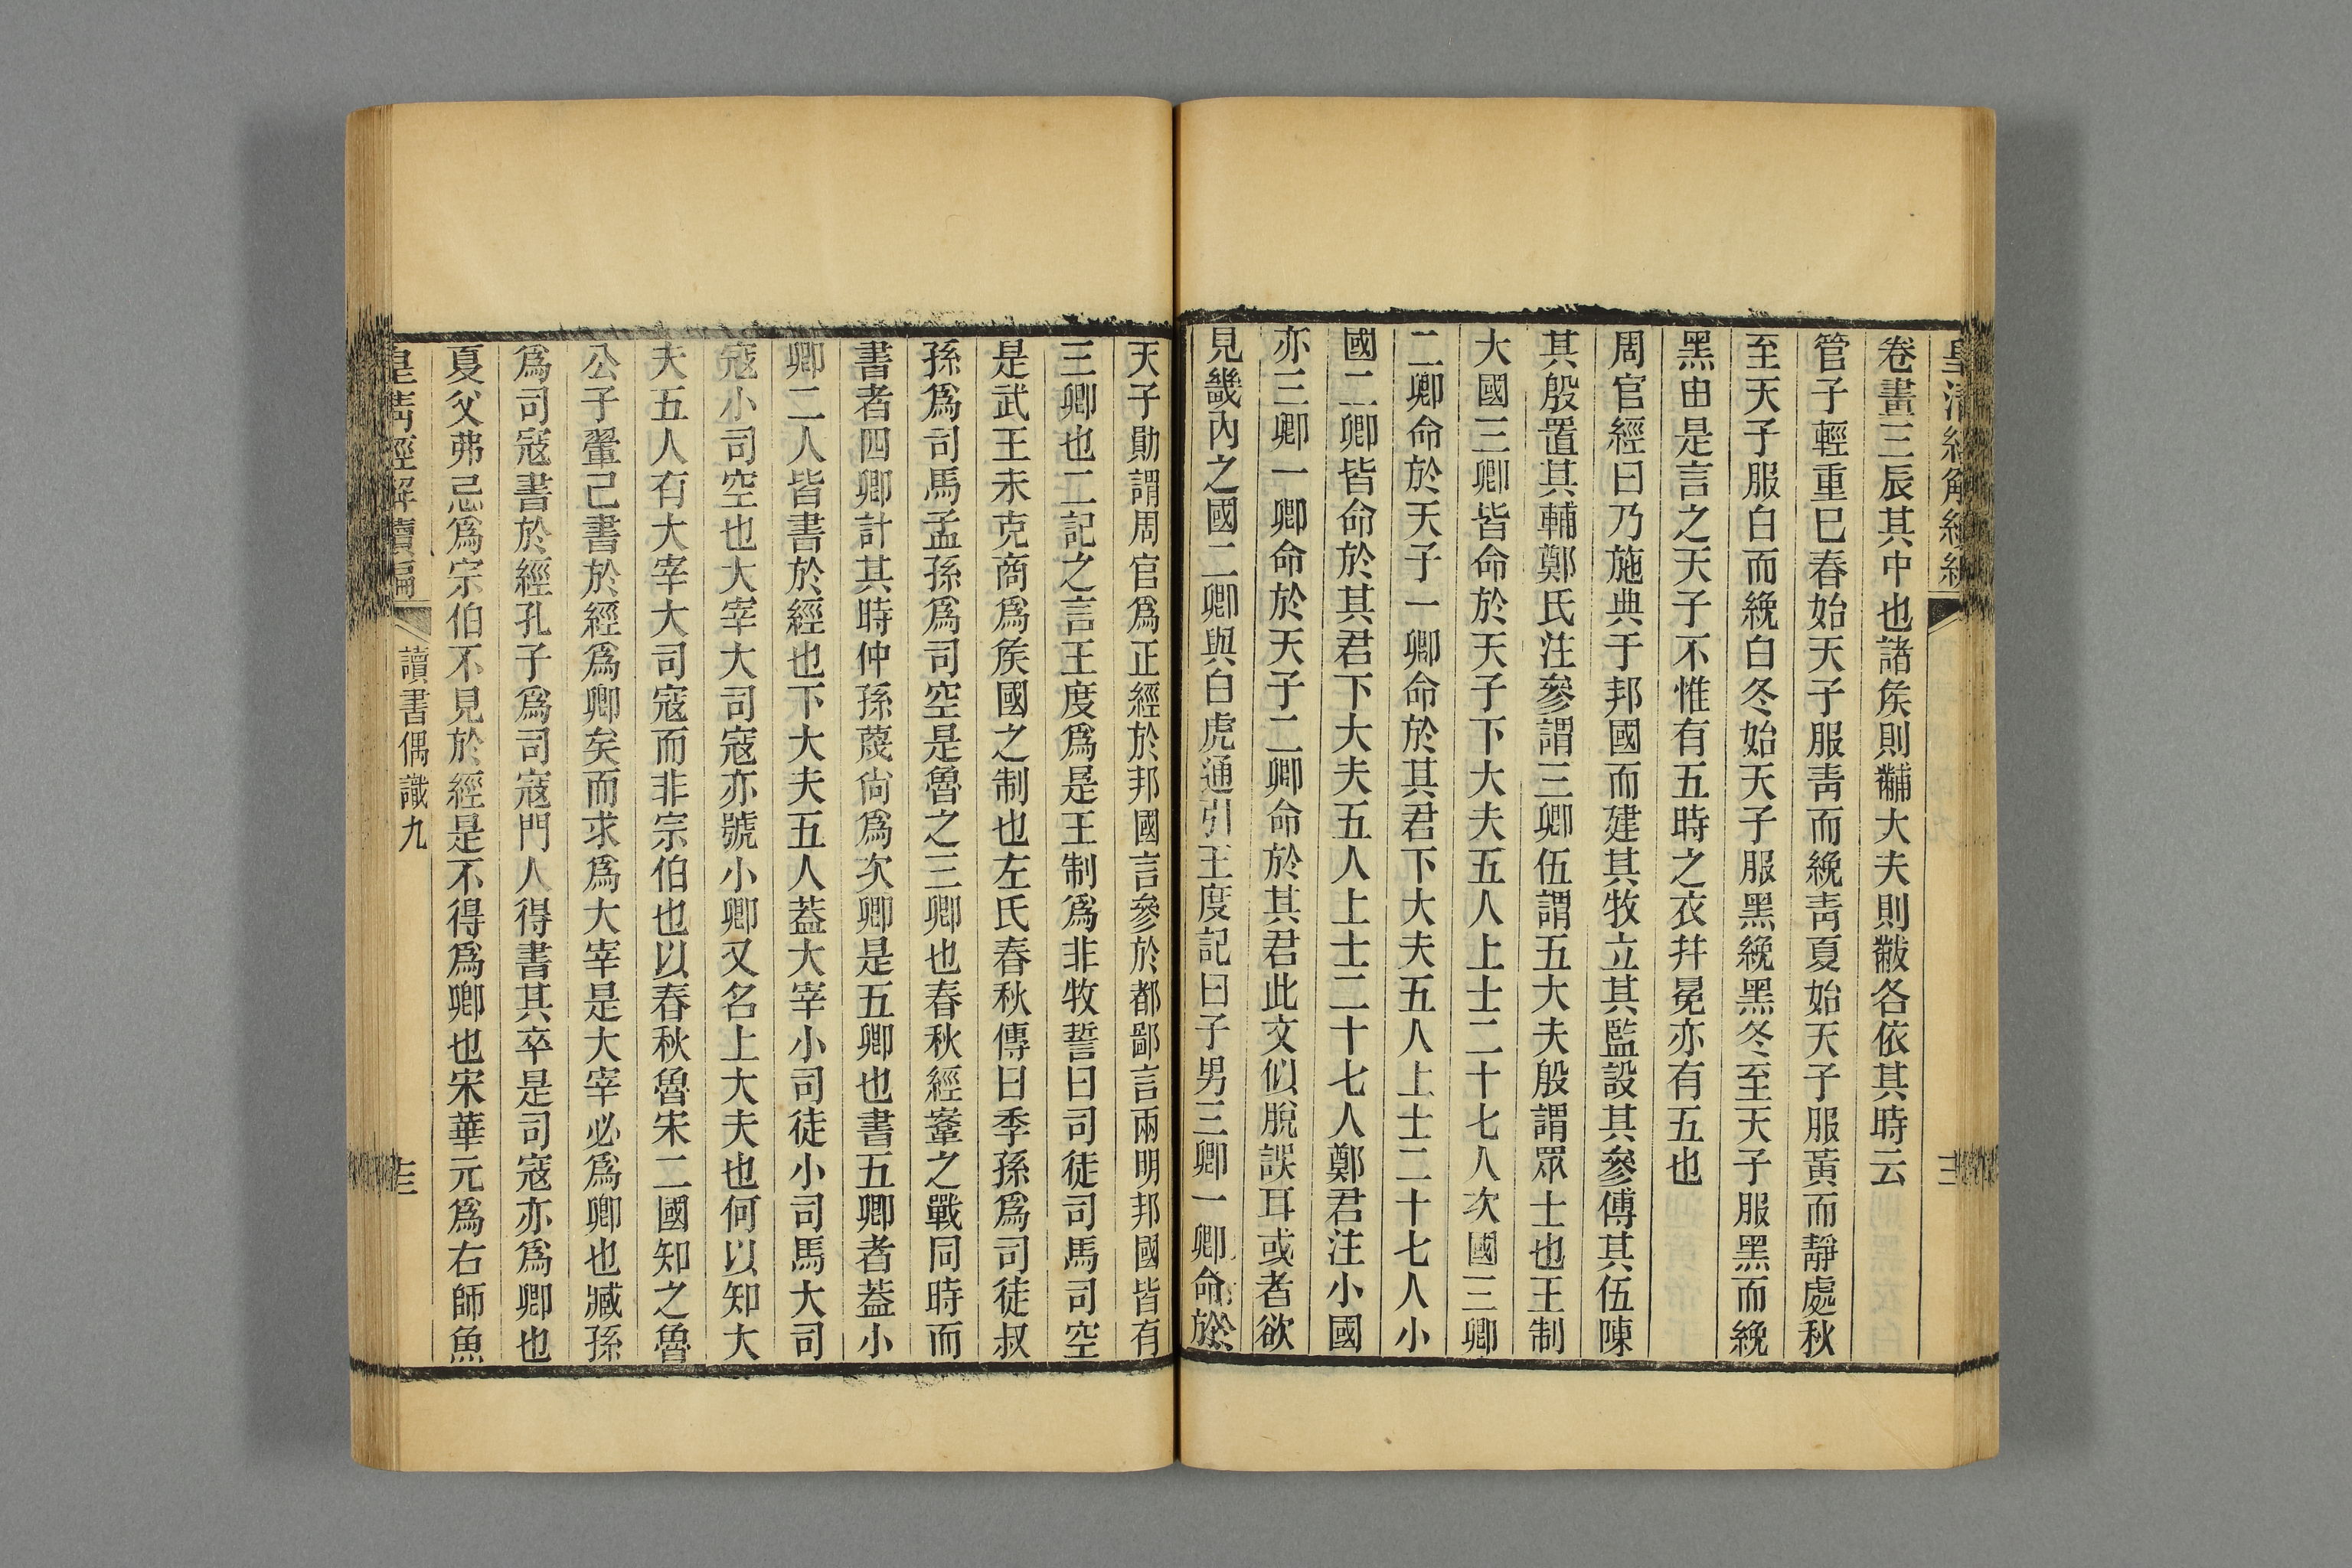 卷畫三辰其中也諸矦則黼大夫則黻各依其時云
管子輕重巳春始天子服靑而絻靑夏始天子服黃而靜處秋
至天子服白而絻白冬始天子服黑絻黑冬至天子服黑而絻
黑由是言之天子不惟有五時之衣幷冕亦有五也
周官經曰乃施典于邦國而建其牧立其監設其參傅其伍陳
其殷置其輔鄭氏注參謂三卿伍謂五大夫殷謂眾士也王制
大國三卿皆命於天子下大夫五人上士二十七人次國三卿
二卿命於天子一卿命於其君下大夫五人上士二十七人小
國二卿皆命於其君下大夫五人上士二十七人鄭君注小國
亦三卿一卿命於天子二卿命於其君此文似脫誤耳或者欲
見畿內之國二卿與白虎通引王度記曰子男三卿一卿命於
天子勛謂周官爲正經於邦國言參於都鄙言兩明邦國皆有
三卿也二記之言王度爲是王制爲非牧誓曰司徒司馬司空
是武王未克商爲矦國之制也左氏春秋傳曰季孫爲司徒叔
孫爲司馬孟孫爲司空是魯之三卿也春秋經鞌之戰同時而
書者四卿計其時仲孫蔑尙爲次卿是五卿也書五卿者葢小
卿二人皆書於經也下大夫五人葢大宰小司徒小司馬大司
寇小司空也大宰大司寇亦號小卿又名上大夫也何以知大
夫五人有大宰大司寇而非宗伯也以春秋魯宋二國知之魯
公子翬己書於經爲卿矣而求爲大宰是大宰必爲卿也臧孫
爲司寇書於經孔子爲司寇門人得書其卒是司寇亦爲卿也
夏父弗忌爲宗伯不見於經是不得爲卿也宋華元爲右師魚
皇淸經解續編
讀書偶識九